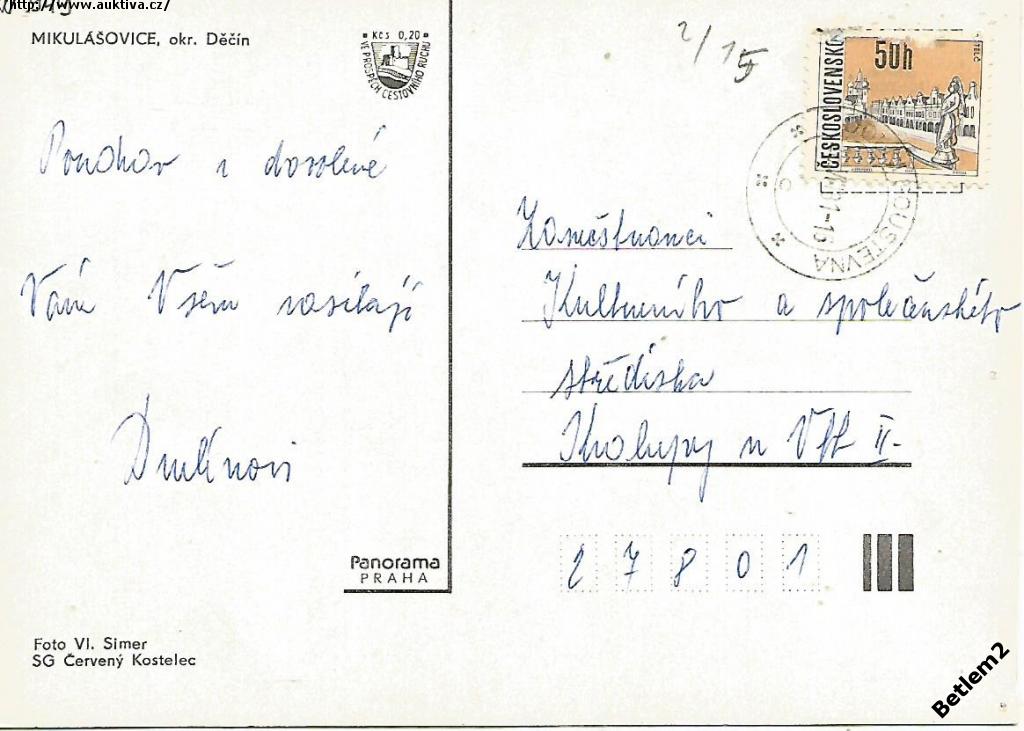 http://www.auktiva.cz/
MIKULÁŠOVICE, okr. Děčín
Kčs 0,20
VE PROSPĚCH CESTOVNÍHO RUCHU
2/15
50h
TELČ
ČESKOSLOVENSKO
OUSTEVNA
81-15
Pozdrav z dovolené
Vám Všem zasílají
Zaměstnanci
Kulturního a společenského
střediska
Kralupy n Vlt II-
27801
Panorama
PRAHA
Foto Vl. Simer
SG Červený Kostelec
Betlem2